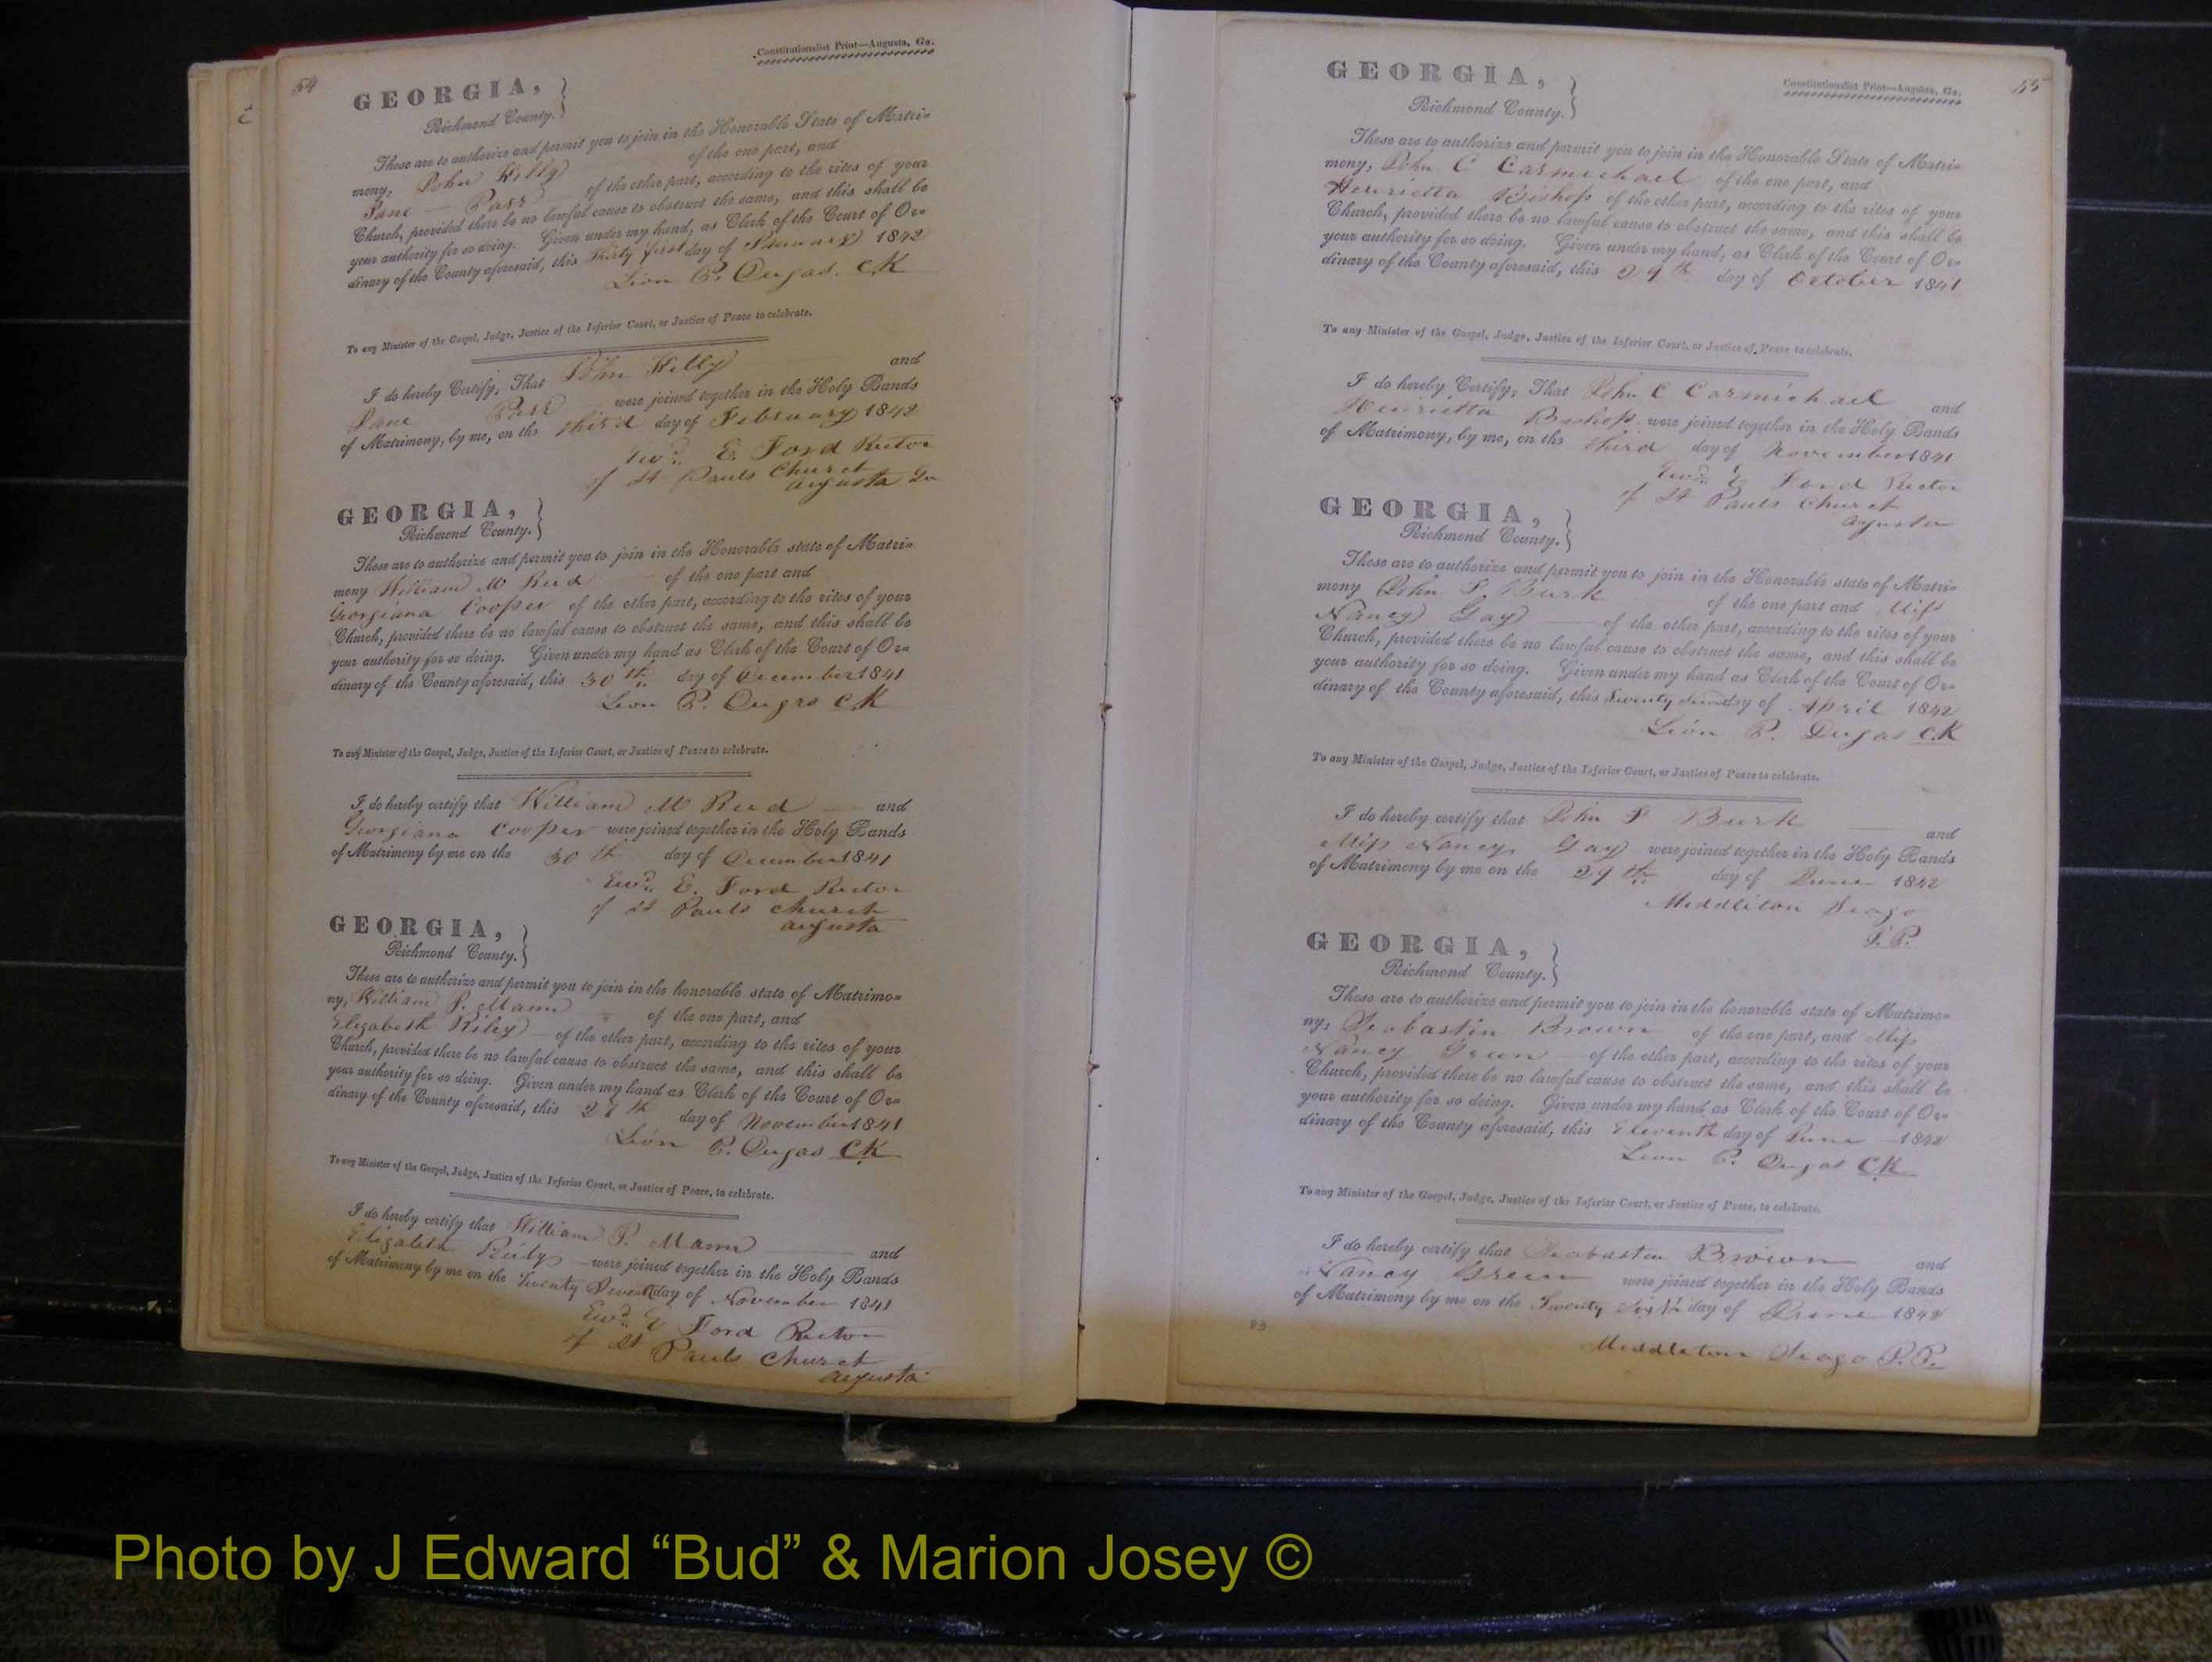 54
Constitutionalist Print—Augusta, Ga.
GEORGIA,
Richmond County.
These are to authorize and permit you to join in the Honorable State of Matri=
mony, John Kelly of the one part, and
Jane — Parr of the other part, according to the rites of your
Church, provided there be no lawful cause to obstruct the same, and this shall be
your authority for so doing. Given under my hand, as Clerk of the Court of Or=
dinary of the County aforesaid, this Thirty first day of January 1842
Leon P. Dugas. CK
To any Minister of the Gospel, Judge, Justice of the Inferior Court, or Justice of Peace to celebrate.
I do hereby Certify, That John Kelly and
Jane Parr were joined together in the Holy Bands
of Matrimony, by me, on the third day of February 1842
Ewd. E. Ford Rector
of St Pauls Church
Augusta Ga
GEORGIA,
Richmond County.
These are to authorize and permit you to join in the Honorable state of Matri=
mony William M Reed of the one part and
Georgiana Cooper of the other part, according to the rites of your
Church, provided there be no lawful cause to obstruct the same, and this shall be
your authority for so doing. Given under my hand as Clerk of the Court of Or=
dinary of the County aforesaid, this 30th day of December 1841
Leon P. Dugas CK
To any Minister of the Gospel, Judge, Justice of the Inferior Court, or Justice of Peace to celebrate.
I do hereby certify that William M Reed — and
Georgiana Cooper were joined together in the Holy Bands
of Matrimony by me on the 30th day of December 1841
Ewd. E. Ford Rector
of St Pauls Church
Augusta
GEORGIA,
Richmond County.
These are to authorize and permit you to join in the honorable state of Matrimo=
ny, William P. Mann of the one part, and
Elizabeth Riley of the other part, according to the rites of your
Church, provided there be no lawful cause to obstruct the same, and this shall be
your authority for so doing. Given under my hand as Clerk of the Court of Or=
dinary of the County aforesaid, this 27th day of November 1841
Leon P. Dugas CK
To any Minister of the Gospel, Judge, Justice of the Inferior Court, or Justice of Peace, to celebrate.
I do hereby certify that William P. Mann and
Elizabeth Reily were joined together in the Holy Bands
of Matrimony by me on the Twenty day of November 1841
Ewd. E Ford Rector
of St Pauls Church
Augusta
55
Constitutionalist Print—Augusta, Ga.
GEORGIA,
Richmond County.
These are to authorize and permit you to join in the Honorable State of Matri=
mony, John C Carmichael of the one part, and
Henrietta Bishop of the other part, according to the rites of your
Church, provided there be no lawful cause to obstruct the same, and this shall be
your authority for so doing. Given under my hand, as Clerk of the Court of Or=
dinary of the County aforesaid, this 29th day of October 1841
To any Minister of the Gospel, Judge, Justice of the Inferior Court, or Justice of Peace to celebrate.
I do hereby Certify, That John C Carmichael and
Henrietta Bishop were joined together in the Holy Bands
of Matrimony, by me, on the third day of November 1841
Ewd. E Ford Rector
of St Pauls Church
Augusta
GEORGIA,
Richmond County.
These are to authorize and permit you to join in the Honorable state of Matri=
mony John Burk of the one part and Miss
Nancy Gay of the other part, according to the rites of your
Church, provided there be no lawful cause to obstruct the same, and this shall be
your authority for so doing. Given under my hand as Clerk of the Court of Or=
dinary of the County aforesaid, this Twenty day of April 1842
Leon P. Dugas CK
To any Minister of the Gospel, Judge, Justice of the Inferior Court, or Justice of Peace to celebrate.
I do hereby certify that John Burk and
Miss Nancy Gay were joined together in the Holy Bands
of Matrimony by me on the 29th day of June 1842
Middleton Seago
J. P.
GEORGIA,
Richmond County.
These are to authorize and permit you to join in the honorable state of Matrimo=
ny, Seabastin Brown of the one part, and Miss
Nancy Green of the other part, according to the rites of your
Church, provided there be no lawful cause to obstruct the same, and this shall be
your authority for so doing. Given under my hand as Clerk of the Court of Or=
dinary of the County aforesaid, this Eleventh day of June 1842
Leon P. Dugas CK
To any Minister of the Gospel, Judge, Justice of the Inferior Court, or Justice of Peace, to celebrate.
I do hereby certify that Seabastin Brown and
Nancy Green were joined together in the Holy Bands
of Matrimony by me on the Twenty Sixth day of June 1842
Middleton Seago J. P.
83
Photo by J Edward “Bud” & Marion Josey ©